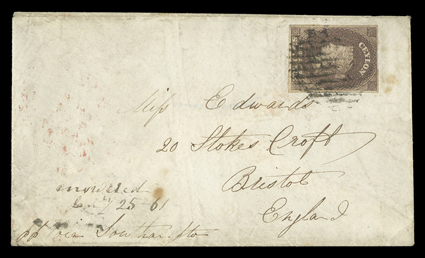 CEYLON
Miss Edwards
20 Stokes Croft
Bristol
England
answered
Jany 25 61
via Southampton